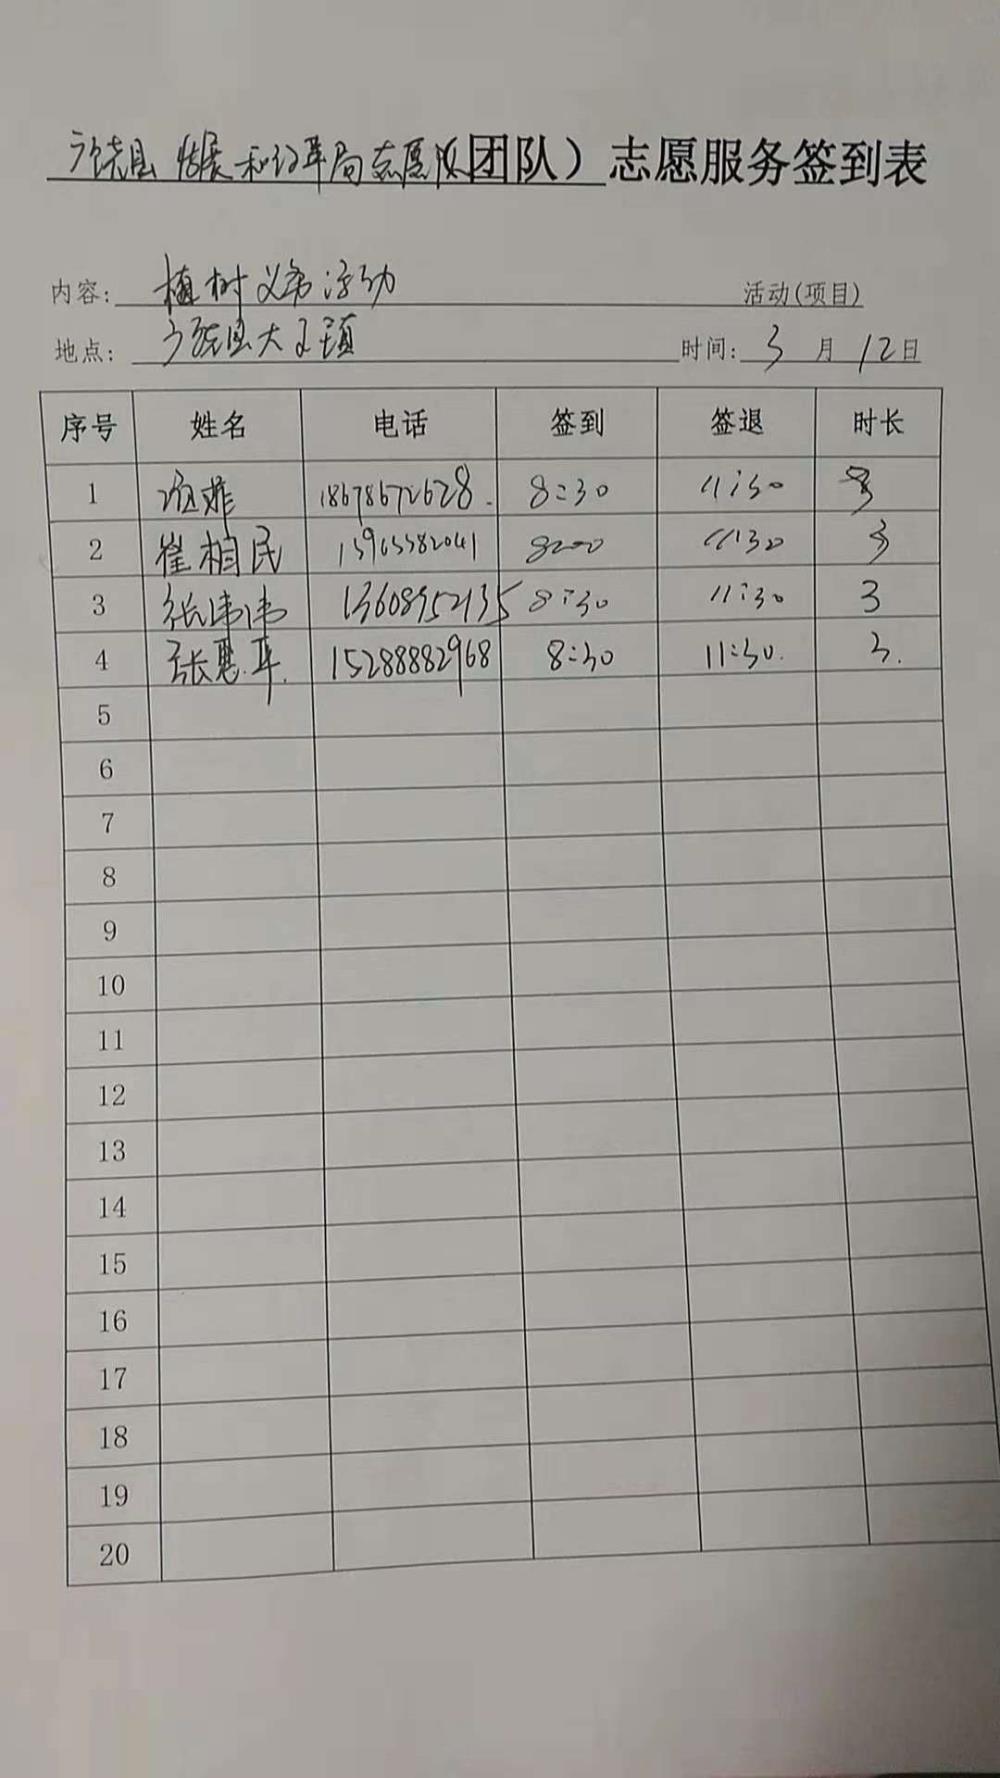 广饶县发展和改革局志愿队(团队）志愿服务签到表
内容: 植树义务活动 活动(项目)
地点: 广饶县大王镇 时间: 3 月 12 日
序号 姓名 电话 签到 签退 时长
1 18678672628. 8:30 11:30 3
2 崔相民 15965382041 8:00 11:30 3
3 张伟伟 13608952135 8:30 11:30 3
4 张惠军. 15288882968 8:30 11:30. 3.
5
6
7
8
9
10
11
12
13
14
15
16
17
18
19
20